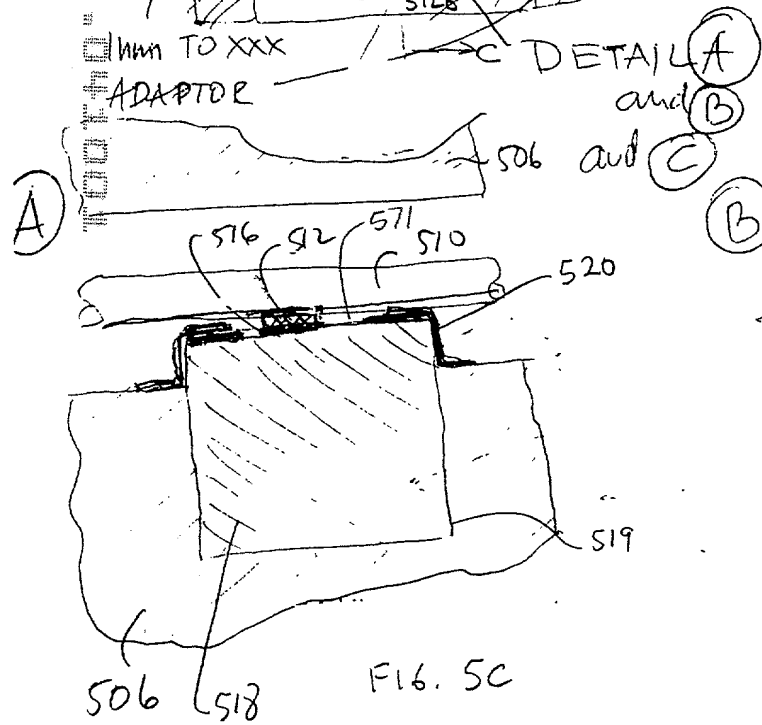 512B
1mm TO XXX
ADAPTOR
C DETAIL A
and B
and C
506
A
B
516 512 571 510
520
519
506 518
FIG. 5C